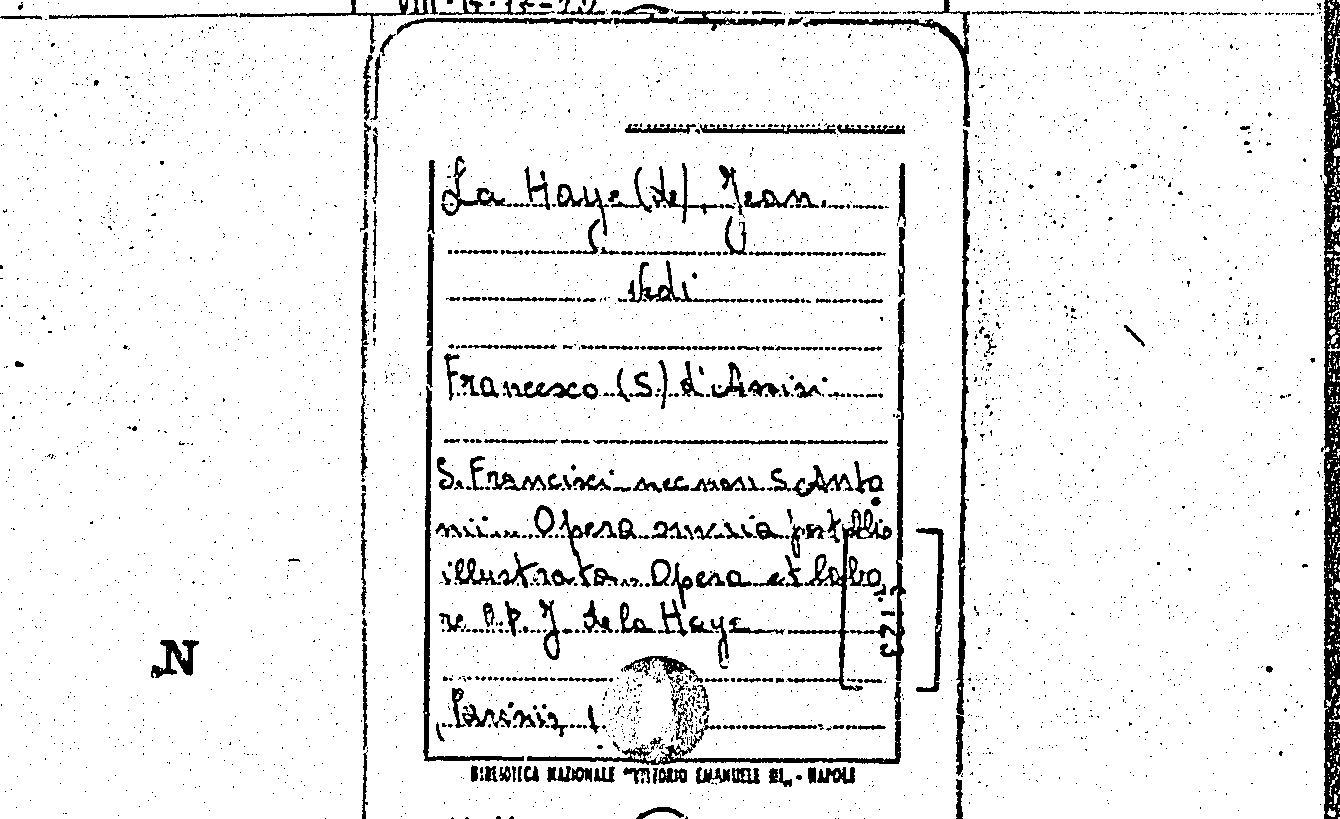 La Haye (de), Jean.
Vedi
Francesco (S.) d'Assisi
S. Francisci necnon S. Anto
nii... Opera omnia postillis
illustrata... Opera et labo
re R. P. J. de la Haye
Parisiis, 1
BIBLIOTECA NAZIONALE "VITTORIO EMANUELE III" - NAPOLI
N